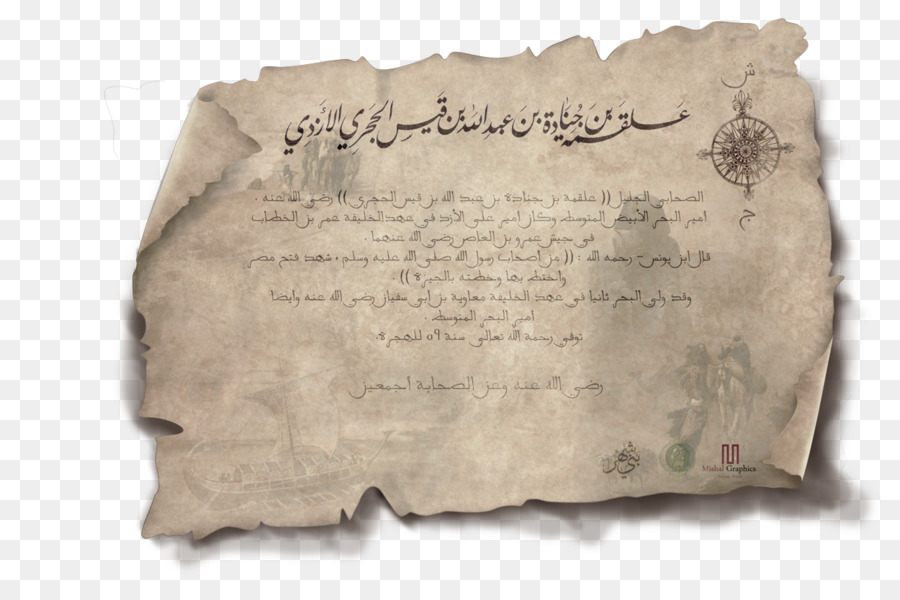 عَلقمَه بن جُنَادة بن عَبدالله بن قَيسِ الحَجرِي الازَدي
ش
ج
الصحابي الجليل (( علقمة بن جنادة بن عبد الله بن قيس الحجري )) رضي الله عنه .
امير البحر الأبيض المتوسط وكان امير على الأزد في عهد الخليفة عمر بن الخطاب
في جيش عمرو بن العاص رضي الله عنهما .
قال ابن يونس- رحمه الله : (( من أصحاب رسول الله صلى الله عليه وسلم ، شهد فتح مصر
واختط بها وخطته بالجيزة )) .
وقد ولي البحر ثانيا في عهد الخليفة معاوية بن أبي سفيان رضي الله عنه وايضا
امير البحر المتوسط .
توفي رحمة الله تعالى سنة ٥٩ للهجرة.
رضي الله عنه وعن الصحابة أجمعين
بني شهر
Mishal Graphics